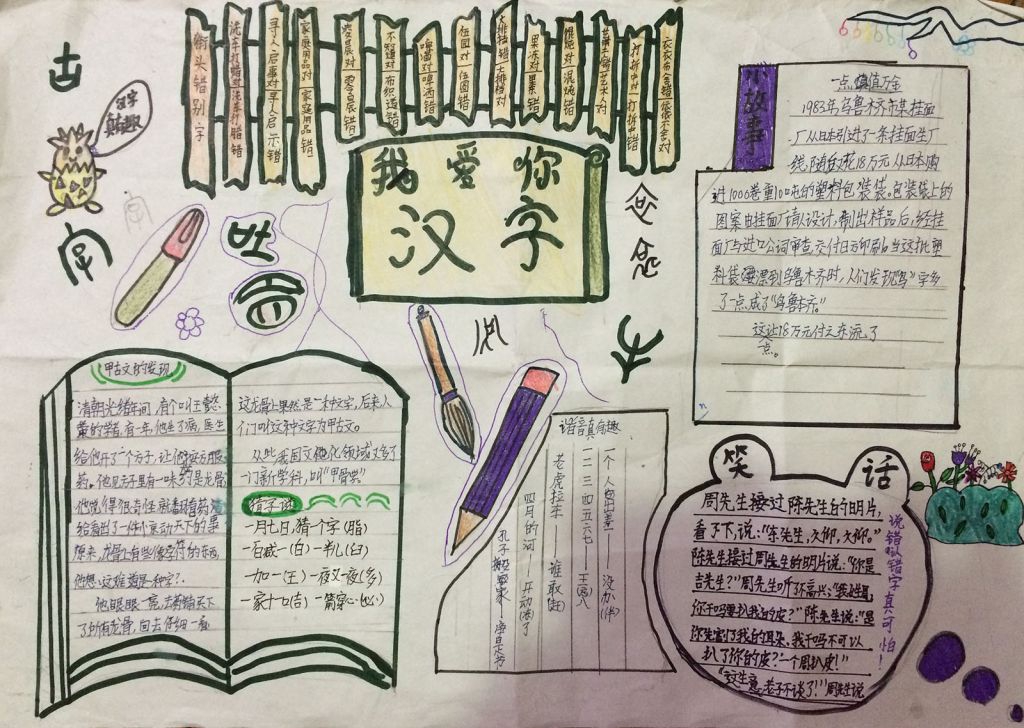 街头错别字
洗车打蜡对 洗车打腊错
寻人启事对 寻人启示错
家庭用品对 家庭用品错
零星展对 零星展错
不锈
布织造错
啤酒对 啤洒错
位园对 位圆错
大排档错 大排档对
果冻对 果果错
馄饨对 混沌错
艺术人对
打折中对 打折中错
古
汉字真有趣
我爱你
汉字
字
吐
小故事
一点值万金
1983年,乌鲁木齐市某挂面
厂从日本引进了一条挂面生产
线,随后又花18万元从日本购
进1000卷重10吨的塑料包装袋。包装袋上的
图案由挂面厂请人设计,制出样品后,经挂
面厂与进口公词审查,交付日方印刷。当这批塑
料袋漂到乌鲁木齐时,人们发现"乌"字多
了一点成了"鸟鲁木齐"。
这让18万元付之东流了
一点。
甲古文的发现
清朝光绪年间,有个叫王懿
荣的学者,有一年,他生了病,医生
给他开了一个方子,让他按方服
药。他见方子里有一味药是龙骨,
他觉得很奇怪就翻看药渣
给看出了一件轰动天下的事
原来,龙骨上有些像字符的东西,
他想:这难道是一种字?。
他眼眼一亮,去药铺买下
了所有龙骨,回去仔细一看
这龙骨上果然是一种中文字,后来人
们叫这种文字为甲古文。
从此,我国文化领域又多了
一门新学科,叫"甲骨学"
猜字谜
一月七日,猜个字(脂)
一百减一(白)一半儿(臼)
一加一(王) 一夜又一夜(多)
一家十口(吉) 一箭穿心(必)
谐音真有趣
一个人出差——没办(伴)
一二三四五六七——王(忘)八
老虎拉车——谁敢(赶)
四月的河——开动(冻)了
孔子搬家——净是书
笑话
周先生接过陈先生的明片,
看了下,说:"东先生,久仰,久仰。"
陈先生接过周先生的明片说:"你是
吉先生?"周先生听了不高兴:"我姓周
你干吗要扒我的皮?"陈先生说:"是
你先割了我的耳朵,我干吗不可以
扒了你的皮?一个周扒皮!"
"这生意,老子不谈了!"周先生说
说错叹错字真可怕!